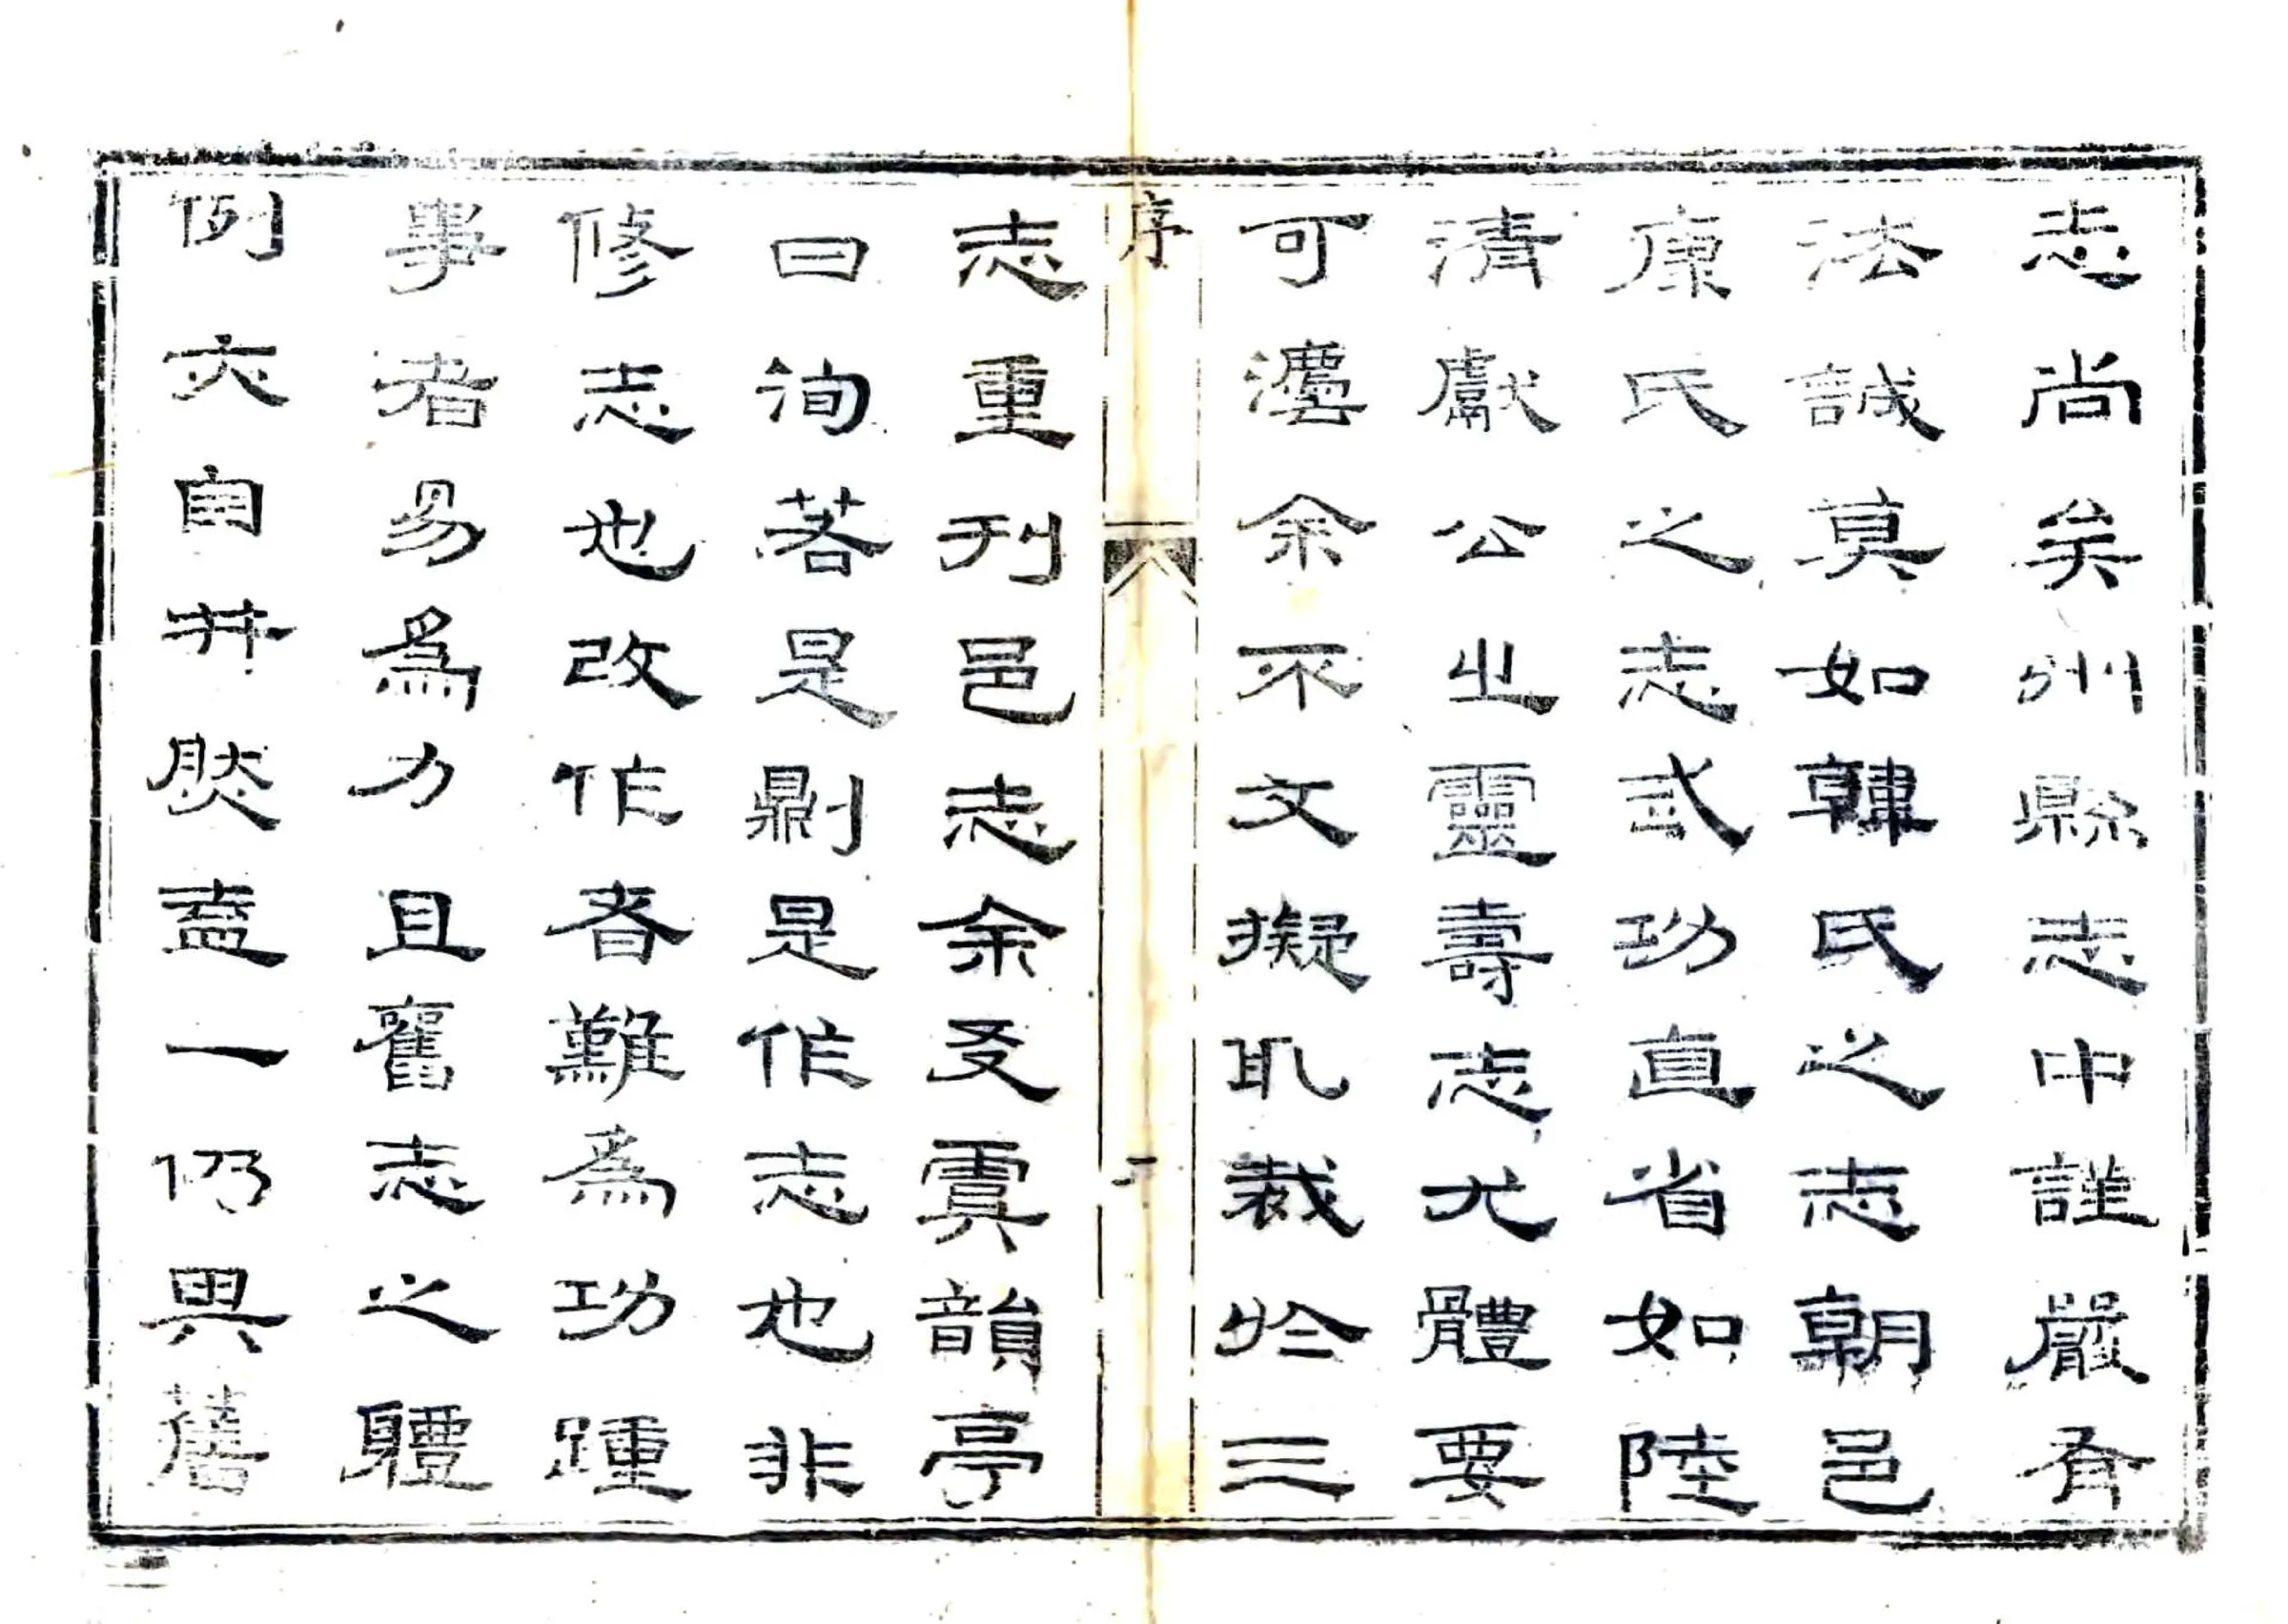 志尚矣州縣志中謹嚴有
法誠莫如韓氏之志朝邑
康氏之志武功直省如陸
清獻公之靈壽志尤體要
可遵余不文擬取裁於三
序
二
志重刊邑志余友賈韻亭
曰洵若是剿是作志也非
修志也改作者難為功踵
事者易為力且舊志之體
例六自井然蓋一仍舊